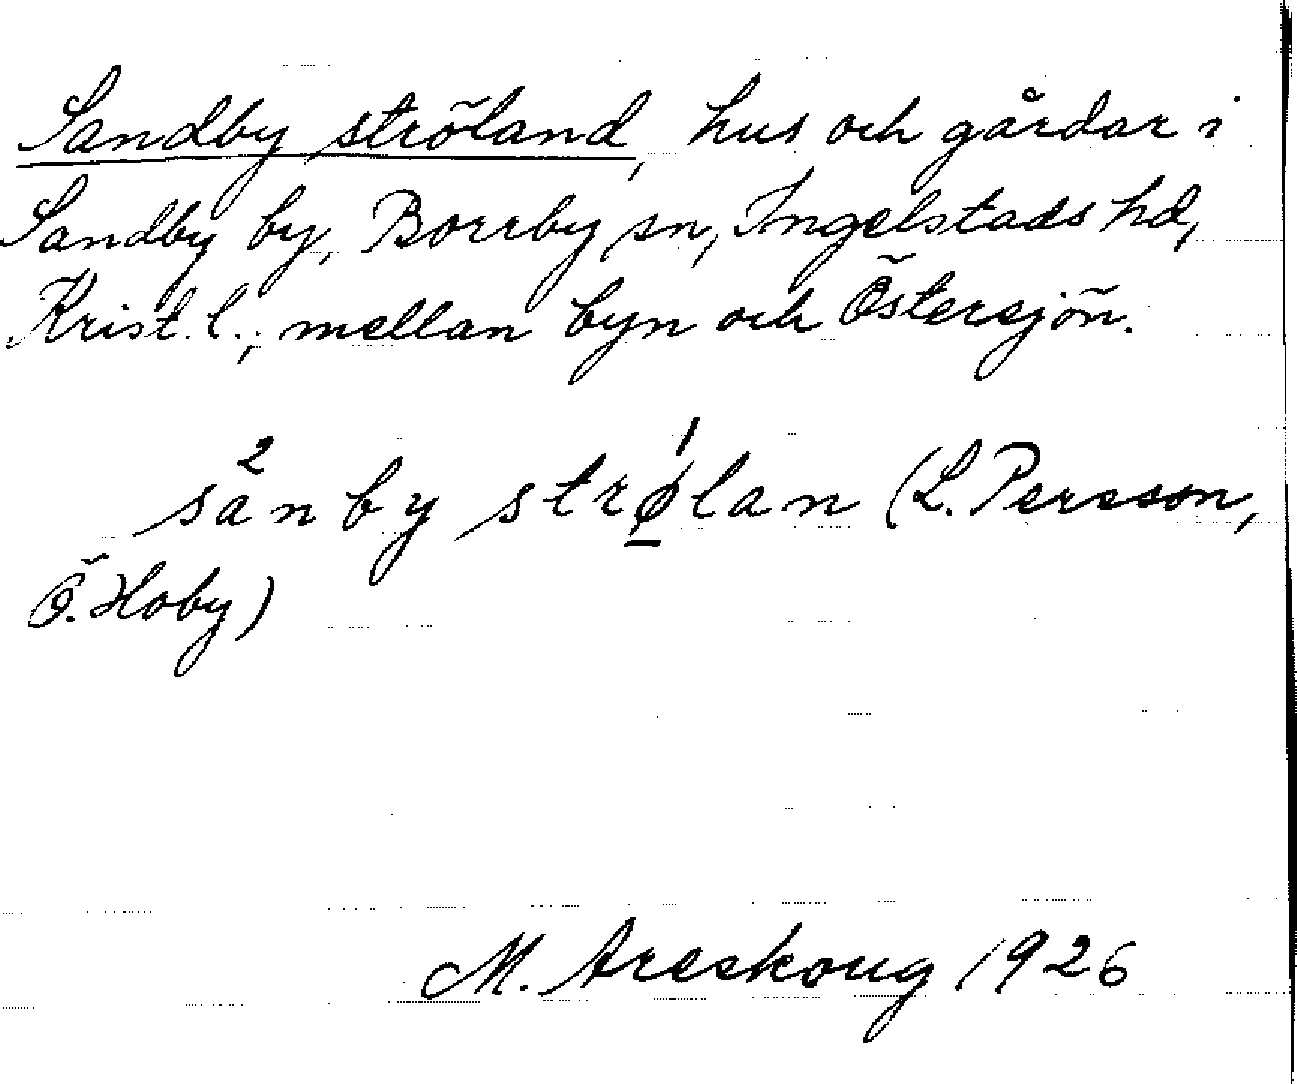 Sandby ströland, hus och gårdar i
Sandby by, Borrby sn, Ingelstads hd,
Krist. l., mellan byn och Östersjön.
sa²nby strø̱¹lan (L. Persson,
Ö. Hoby)
M. Areskoug 1926